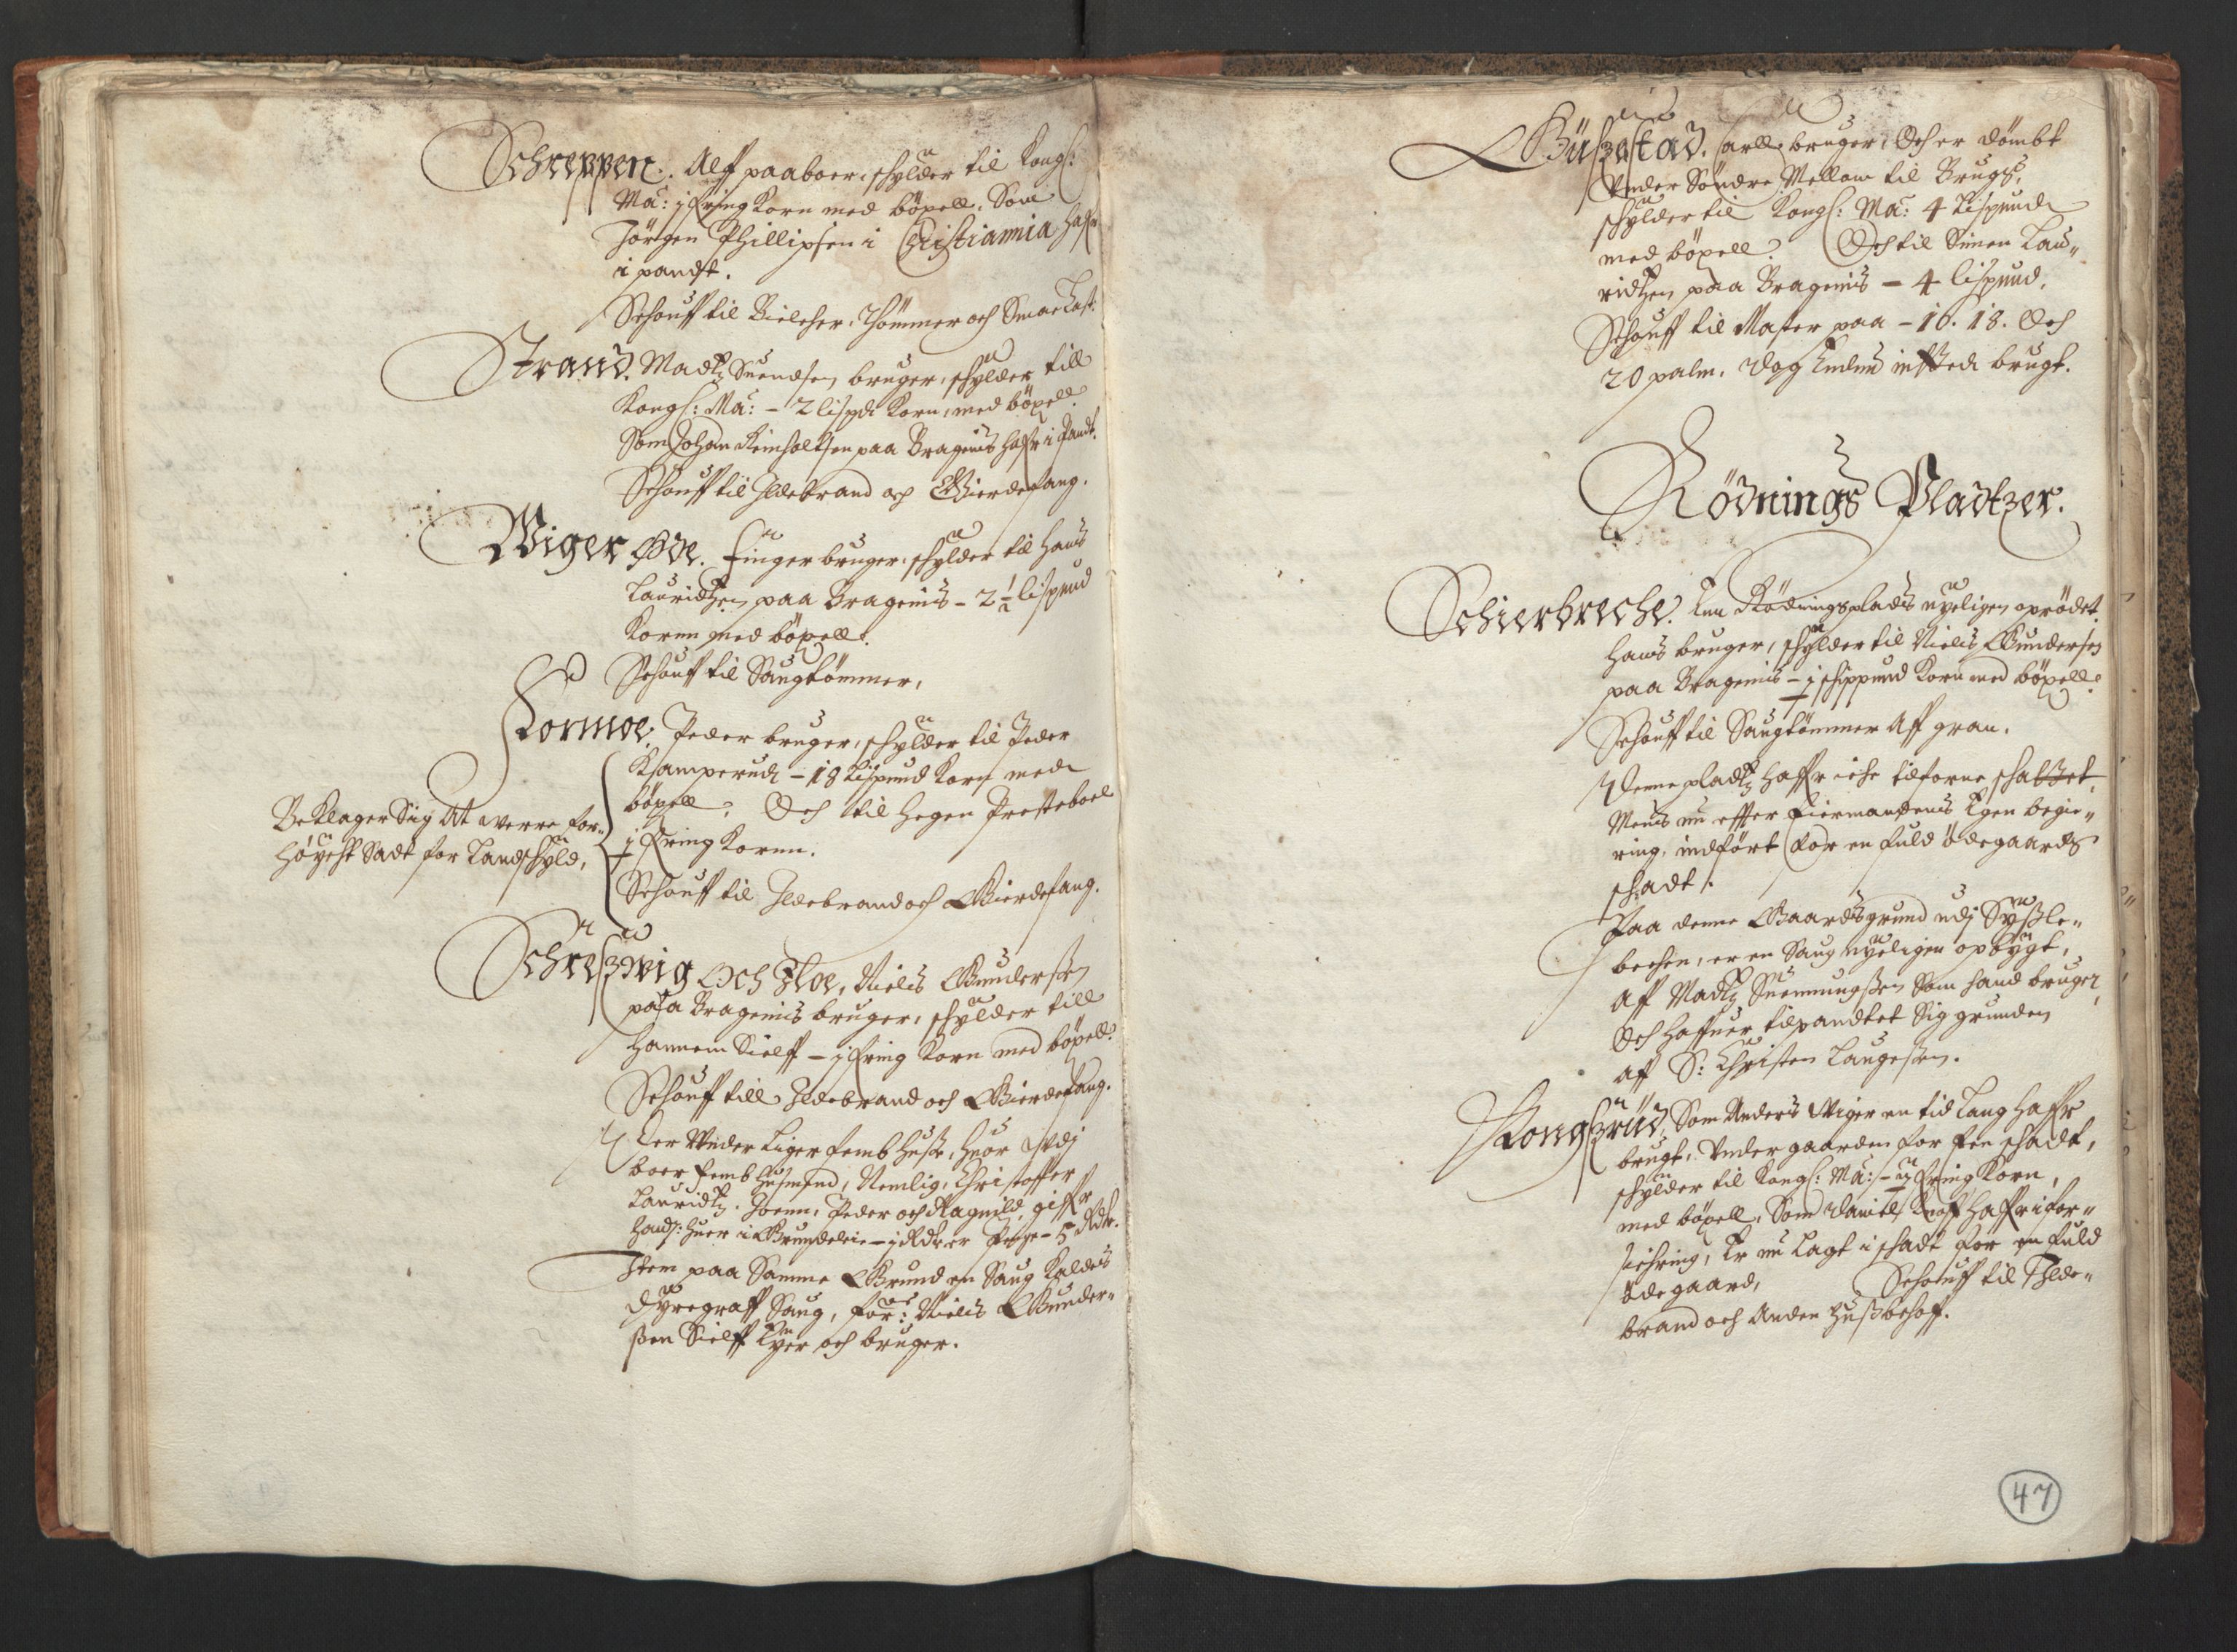 Schreppen. Alff paaboer, schylder til Kongl:
Ma: j fring Korn med böxell. Som
Jörgen Phillipsen i Christiannia Haffr
i pandt.
Schouff til Bielcher, Thömmer och Smaelast.
Strand. Madtz Suendsen bruger, schylder till
Kongl: Ma: – 2 lispd Korn, med böxell
Som Johan Reinholtsen paa Bragenis haffr i Pandt.
Schouff til Ildebrand och Gierdefang.
Wiger Øde. Einger bruger, schylder til Hans
Lauridtzen paa Bragenis – 2 1/2 lispund
Koren med böxell.
Schouff til Saugtömmer,
Kormoe. Peder bruger, schylder til Peder
Kamperud – 18 Lispund Korn med
böxell. Och til Hegen Presteboel
j fring Koren.
Beklager Sig At werre for-
höyeste Sadt for Landschyld,
Schouff til Ildebrand och Gierdefang.
Schreszwig Och Floe, Nielis Gunderssen
paa Bragenis bruger, schylder till
hannem Sielff – j fring Korn med böxell.
Schouff till Ildebrand och Gierdefang.
Der Under Liger femb Husse, huor Udj
boer femb Husmend, Nemlig, Christoffer
Lauridtz. Joenn, Peder och Ragnild, giffr
huer i Grundeleie – j Rdr er Penge – 5 Rdr.
Item paa Samme Grund en Saug Kaldes
Dyregraff Saug, for: Nielis Gunder-
ssen Sielff Eyer och bruger.
Büszestad. Carll bruger, Och er dömbt
Under Söndre Mellom til Brugs,
schylder til Kongl: Ma: 4 Lispund
med böxell. Och til Simen Lau-
ridtzen paa Bragenis – 4 lispund.
Schouff til Master paa – 16. 18. Och
20 palm. Dog Endnu intted brugt.
Rödnings Pladtzer.
Schierbreche. Em Rödningsplads nyeligen oprödet.
Hans bruger, schylder til Nielis Gundersen
paa Bragenis – j schippund Korn med böxell.
Schouff til Saugtömmer Aff gran.
Denne pladtz haffr iche tilforne schattet,
Mens nu effter Eiermandens Egen begie-
ring, indfört for en fuld ödegaards
schadt.
Paa denne Gaards grund udj Syszle-
bechen, er en Saug nyeligen opbygt,
aff Madtz Suennungssen Som hand bruger
Och haffuer tilpandtet Sig grunden
aff S: Christen Laugessen.
Kongszrud, Som Anders Wiger en tid lang haffr
brugt, Under gaarden for Een schadt,
schylder til Kongl: Ma: – 2 fring Korn,
med böxell, Som Daniel Knoff haffr i for-
sichring, Er nu Lagt i schadt for en fuld
ödegaard, Schouff til Ilde-
brand och Anden Huszbehoff.
47